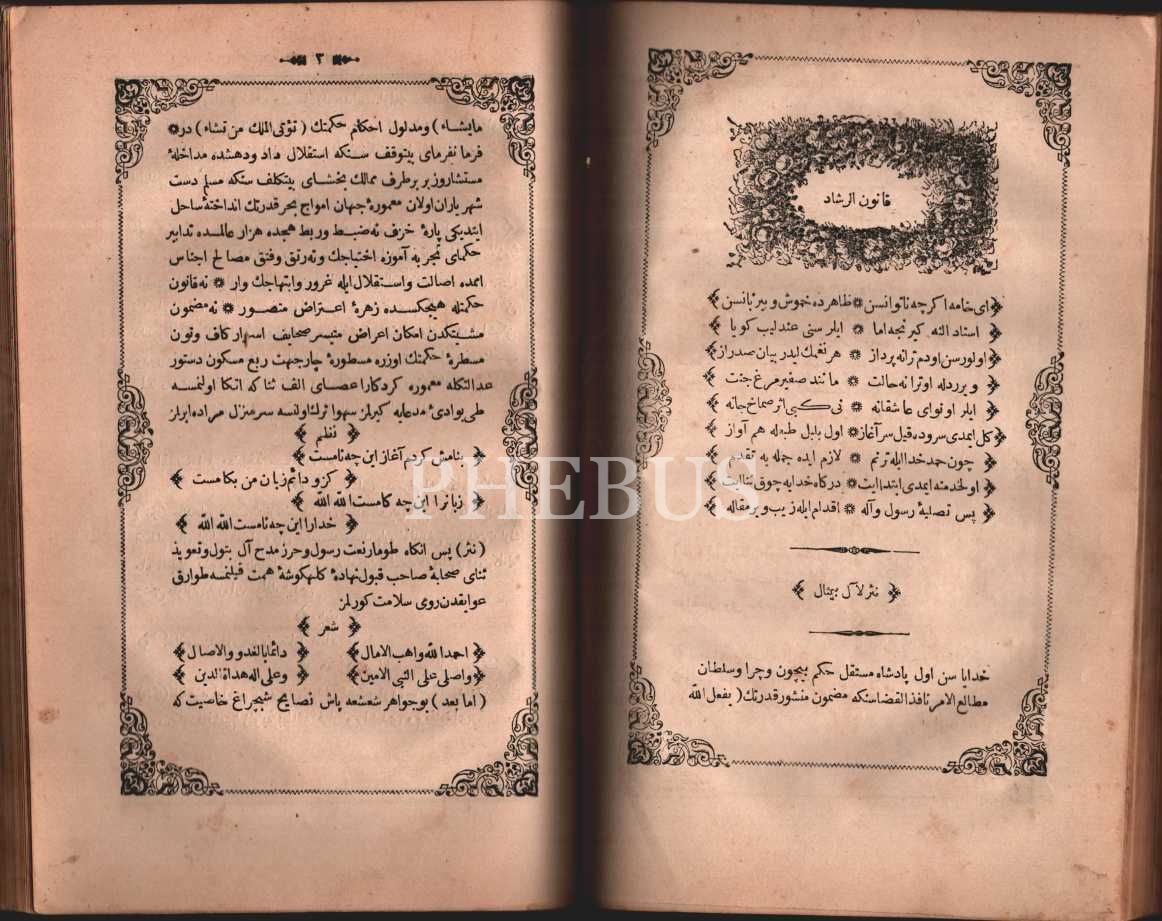 قانون الرشاد
ای خامه اگرچه ناتوانسن * ظاهرده خموش و بیزبانسن
استاد الله کیرنجه اما * ایلر سنی عندلیب کویا
اولورسن اودم ترانه پرداز * هر نغمه‌ك ایدر بیان صد راز
ویرردله اوترانه حالت * مانند صفیر مرغ جنت
ایلر او نوای عاشقانه * نی کبی اثر صماخ جانه
کل ایمدی سروده قیل سرآغاز * اول بلبل طبعله هم آواز
چون حمد خدا ایله ترنم * لازم ایده جمله یه تقدم
اولخدمته ایمدی ابتدا ایت * درکاه خدایه چوق ثنا ایت
پس تصلیهٔ رسول وآله * اقدام ایله زیب ویر مقاله
نثر لآلی بیمثال
خدایا سن اول پادشاه مستقل حکم بیچون وچرا وسلطان
مطالع الامر نافذ القضاسنکه مضمون منشور قدرتك ( یفعل الله
٣
مایشاء ) ومدلول احکام حکمتك ( تؤتی الملك من تشاء ) در *
فرما نفرمای بیتوقف سنکه استقلال داد ودهشده مداخلهٔ
مستشار وزیر برطرف ممالك بخشای بیتکلف سنکه مسلم دست
شهریاران اولان معمورهٔ جهان امواج بحر قدرتك انداختهٔ ساحل
ایتدیکی پارهٔ خزف نه ضبط وربط هجده هزار عالمده تدابیر
حکمای تجربه آموزه احتیاجك ونه رتق وفتق مصالح اجناس
اممده اصالت واستقلال ایله غرور وابتهاجك وار * نه قانون
حکمتله هیچکسده زهرهٔ اعتراض متصور * نه مضمون
مشیتکدن امکان اعراض متیسر صحایف اسرار کاف ونون
مسطرهٔ حکمتك اوزره مسطورهٔ چارجهت ربع مسکون دستور
عدالتکله معموره کردکارا عصای الف ثنا که اتکا اولنمسه
طی بوادیٔ مدعایه کیرلمز سهوا ترك اولنسه سرمنزل مراده ایرلمز
نظم
بنامش کردم آغاز این چه نامست
کزو دائم زبان من بکامست
زبانرا این چه کامست الله الله
خدارا این چه نامست الله الله
( نثر ) پس انکاه طومار نعت رسول وحرز مدح آل بتول وتعویذ
ثنای صحابهٔ صاحب قبول نهادهٔ کلهکوشهٔ همت قیلنمسه طوارق
عوایقدن روی سلامت کورلمز
شعر
احمد الله واهب الامال دائما بالغدو والاصال
واصلی علی النبی الامین وعلی اله هداة الدین
( اما بعد ) بو جواهر شعشعه پاش نصایح شبچراغ خاصیت که
PHEBUS